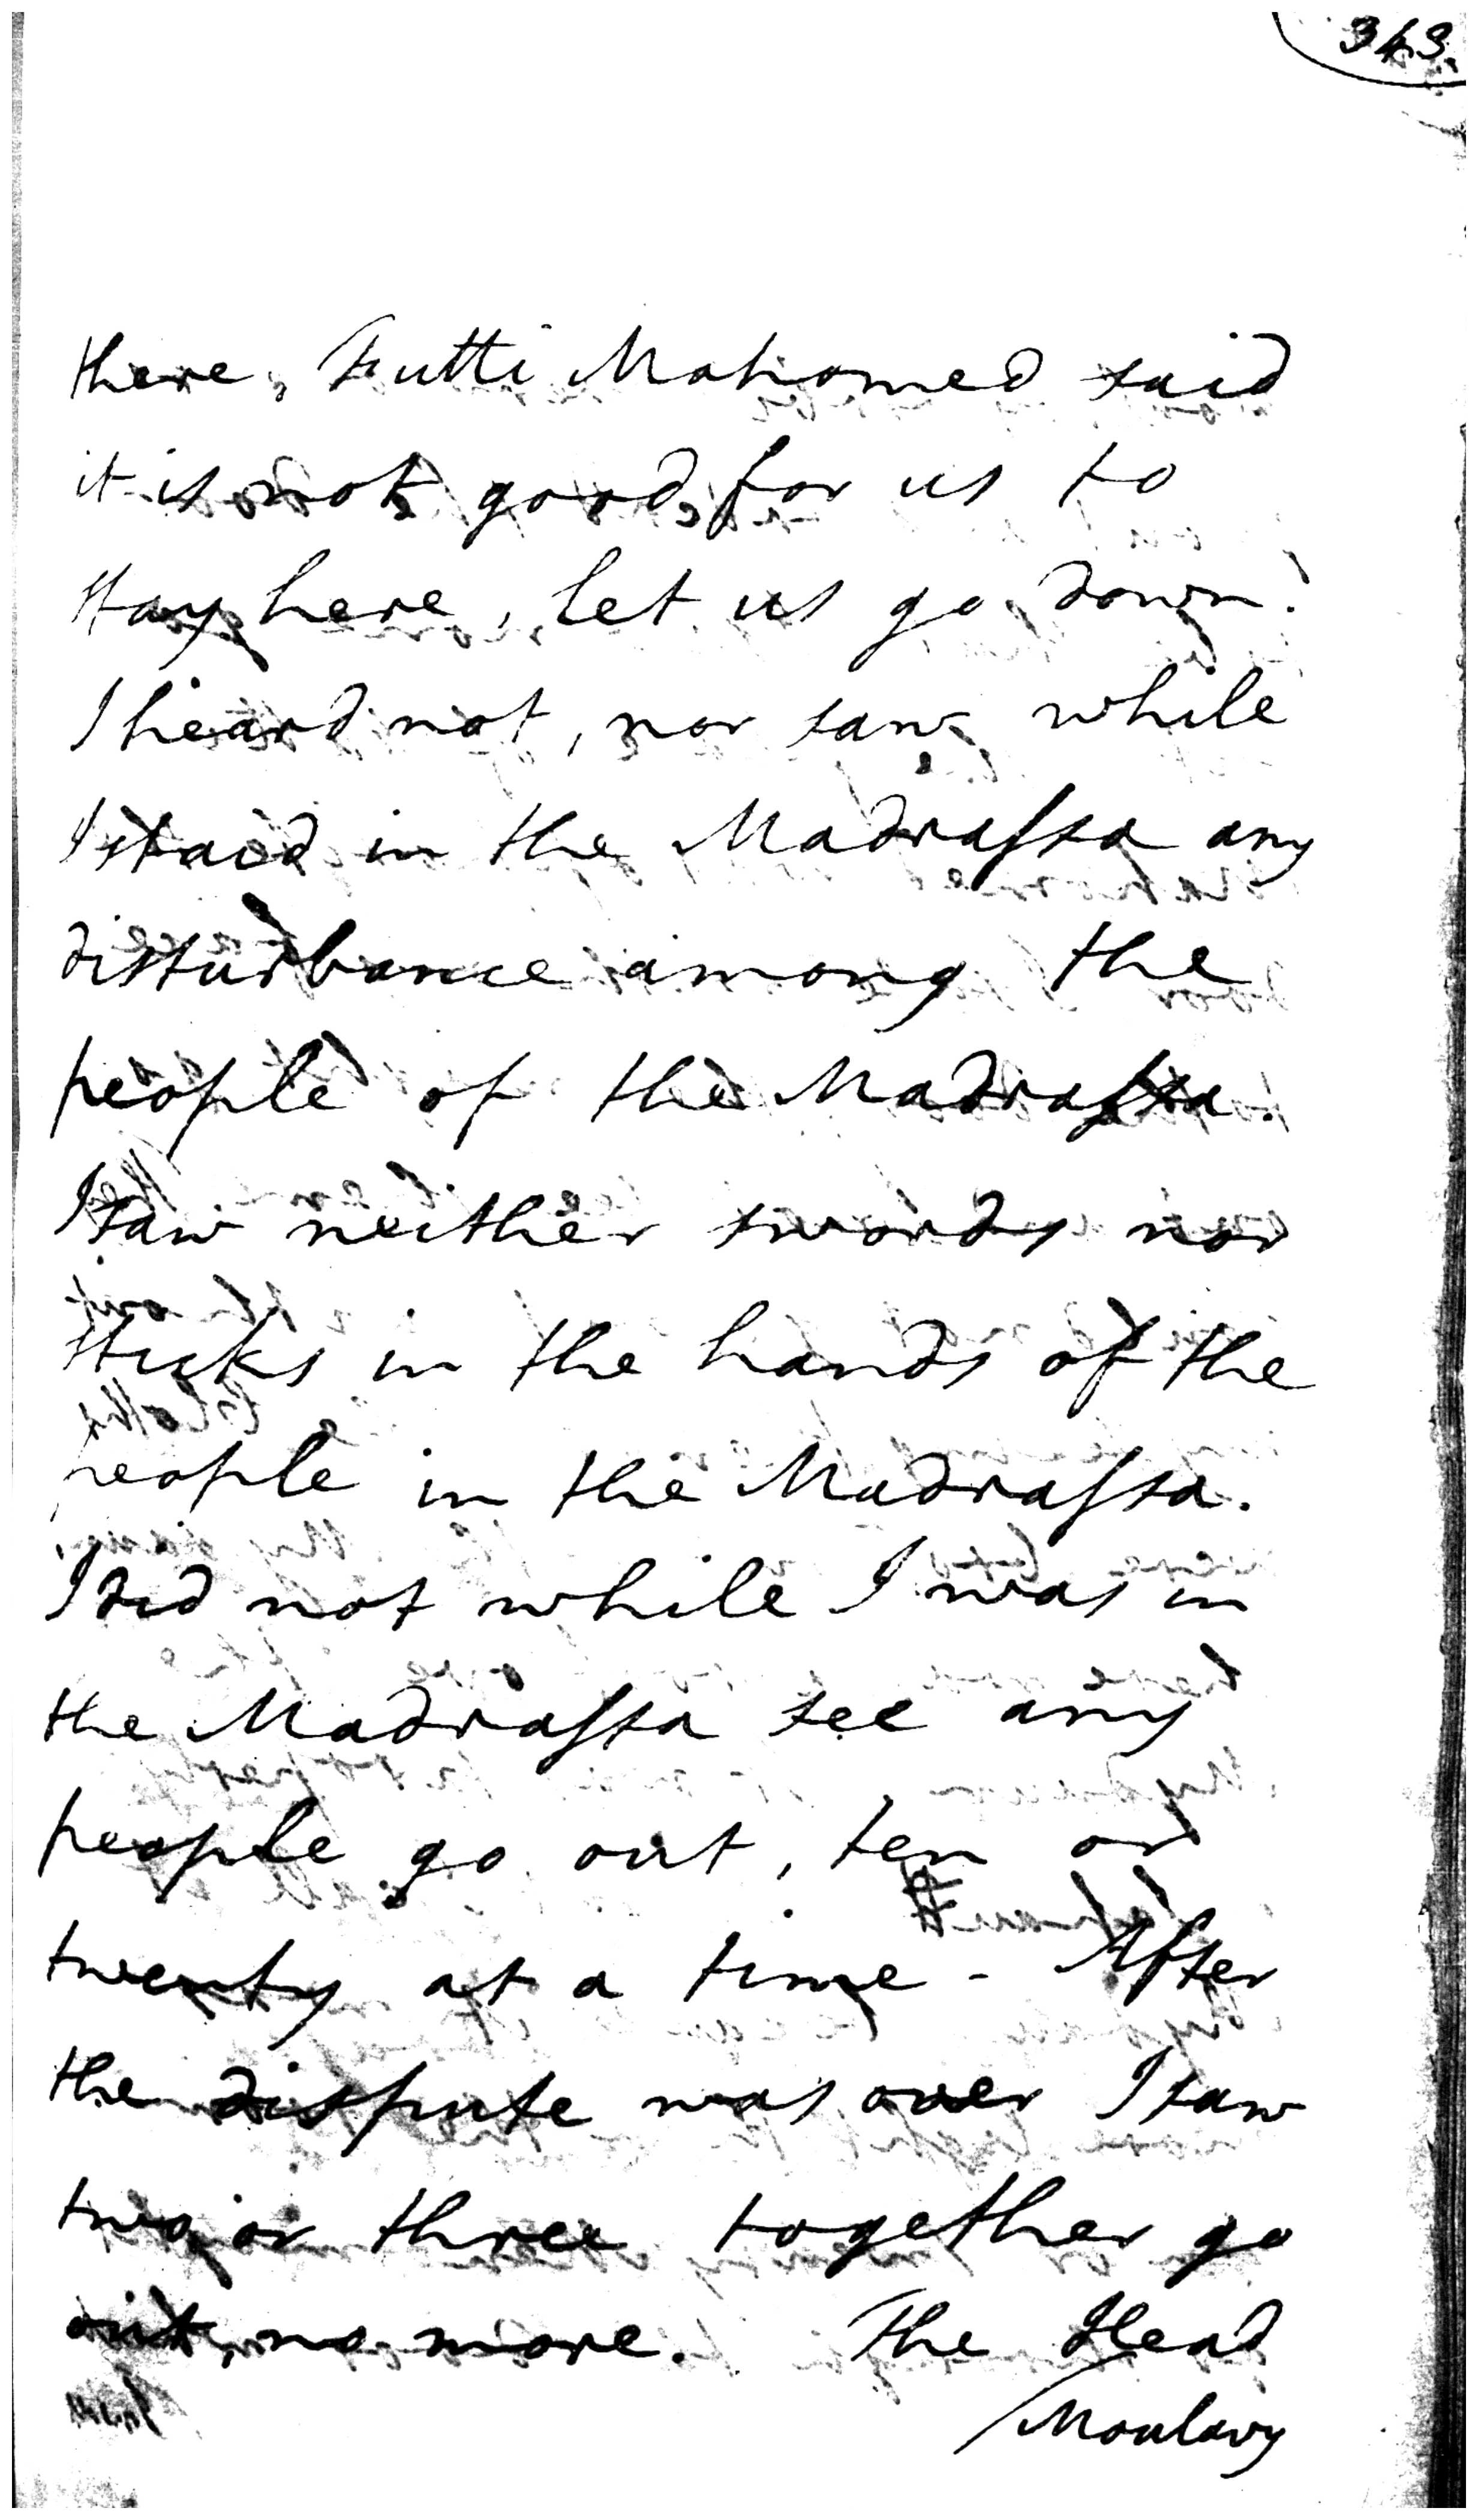 343.
there, Futti Mahomed said
it is not good for us to
stay here, let us go down.
I heard not, nor saw while
I staid in the Madraſsa any
disturbance among the
people of the Madraſsa.
I saw neither swords nor
sticks in the hands of the
people in the Madraſsa.
I did not while I was in
the Madraſsa see any
people go out, ten or
twenty at a time - After
the dispute was over I saw
two or three together go
out, no more. The Head
Moulavy